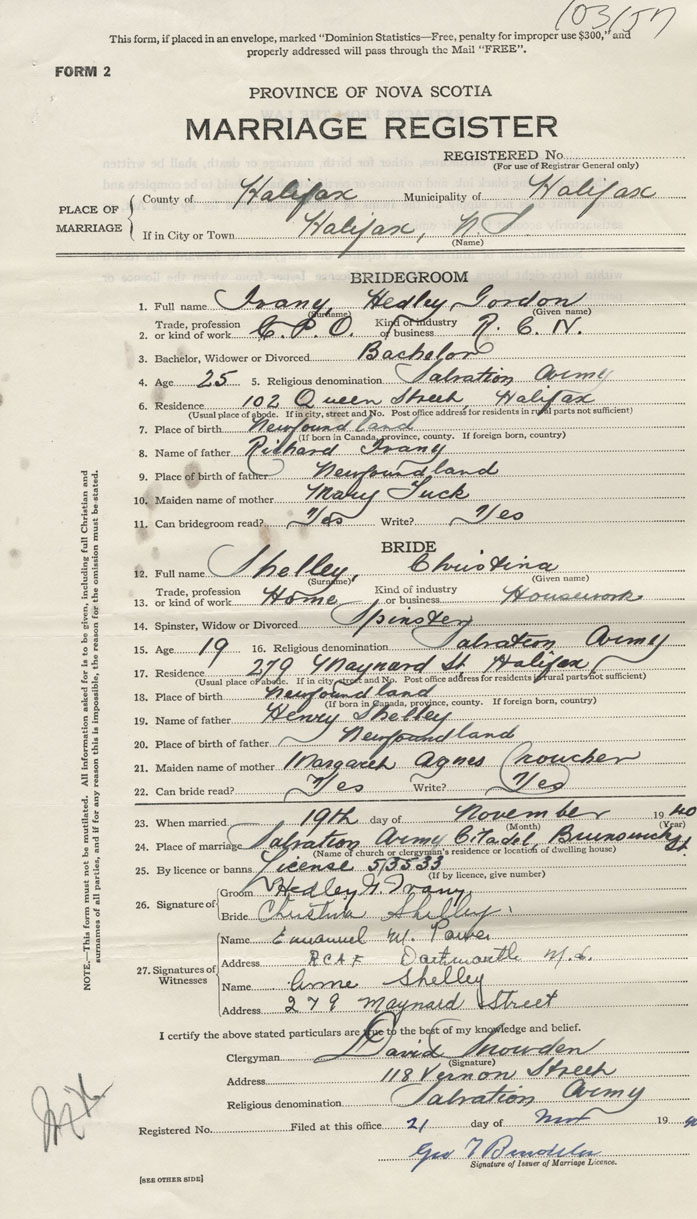 This form, if placed in an envelope, marked "Dominion Statistics—Free, penalty for improper use $300," and
properly addressed will pass through the Mail "FREE".
FORM 2
PROVINCE OF NOVA SCOTIA
MARRIAGE REGISTER
REGISTERED No.
(For use of Registrar General only)
PLACE OF MARRIAGE
County of Halifax Municipality of Halifax
If in City or Town Halifax, N.S
(Name)
BRIDEGROOM
1. Full name Ivany, Hedley Gordon
(Surname) (Given name)
2. Trade, profession or kind of work C.P.O. Kind of industry or business R.C.N.
3. Bachelor, Widower or Divorced Bachelor
4. Age 25 5. Religious denomination Salvation Army
6. Residence 102 Queen Street, Halifax
(Usual place of abode. If in city, street and No. Post office address for residents in rural parts not sufficient)
7. Place of birth Newfoundland
(If born in Canada, province, county. If foreign born, country)
8. Name of father Richard Ivany
9. Place of birth of father Newfoundland
10. Maiden name of mother Mary Tuck
11. Can bridegroom read? Yes Write? Yes
BRIDE
12. Full name Shelley, Christina
(Surname) (Given name)
13. Trade, profession or kind of work Home Kind of industry or business Housework
14. Spinster, Widow or Divorced Spinster
15. Age 19 16. Religious denomination Salvation Army
17. Residence 279 Maynard St. Halifax
(Usual place of abode. If in city, street and No. Post office address for residents in rural parts not sufficient)
18. Place of birth Newfoundland
(If born in Canada, province, county. If foreign born, country)
19. Name of father Henry Shelley
20. Place of birth of father Newfoundland
21. Maiden name of mother Margaret Agnes Croucher
22. Can bride read? Yes Write? Yes
23. When married 19th day of November 1940
(Month) (Year)
24. Place of marriage Salvation Army Citadel, Brunswick St.
(Name of church or clergyman's residence or location of dwelling house)
25. By licence or banns License 53533
(If by licence, give number)
26. Signature of
Groom Hedley G. Ivany
Bride Christina Shelley
27. Signatures of Witnesses
Name Emanuel W. Power
Address RCAF Dartmouth N.S.
Name Anne Shelley
Address 279 Maynard Street
I certify the above stated particulars are true to the best of my knowledge and belief.
Clergyman David Snowden
(Signature)
Address 118 Vernon Street
Religious denomination Salvation Army
Registered No. Filed at this office 21 day of Nov 1940
Signature of Issuer of Marriage Licence.
[SEE OTHER SIDE]
NOTE.—This form must not be mutilated. All information asked for is to be given, including full Christian and
surnames of all parties, and if for any reason this is impossible, the reason for the omission must be stated.